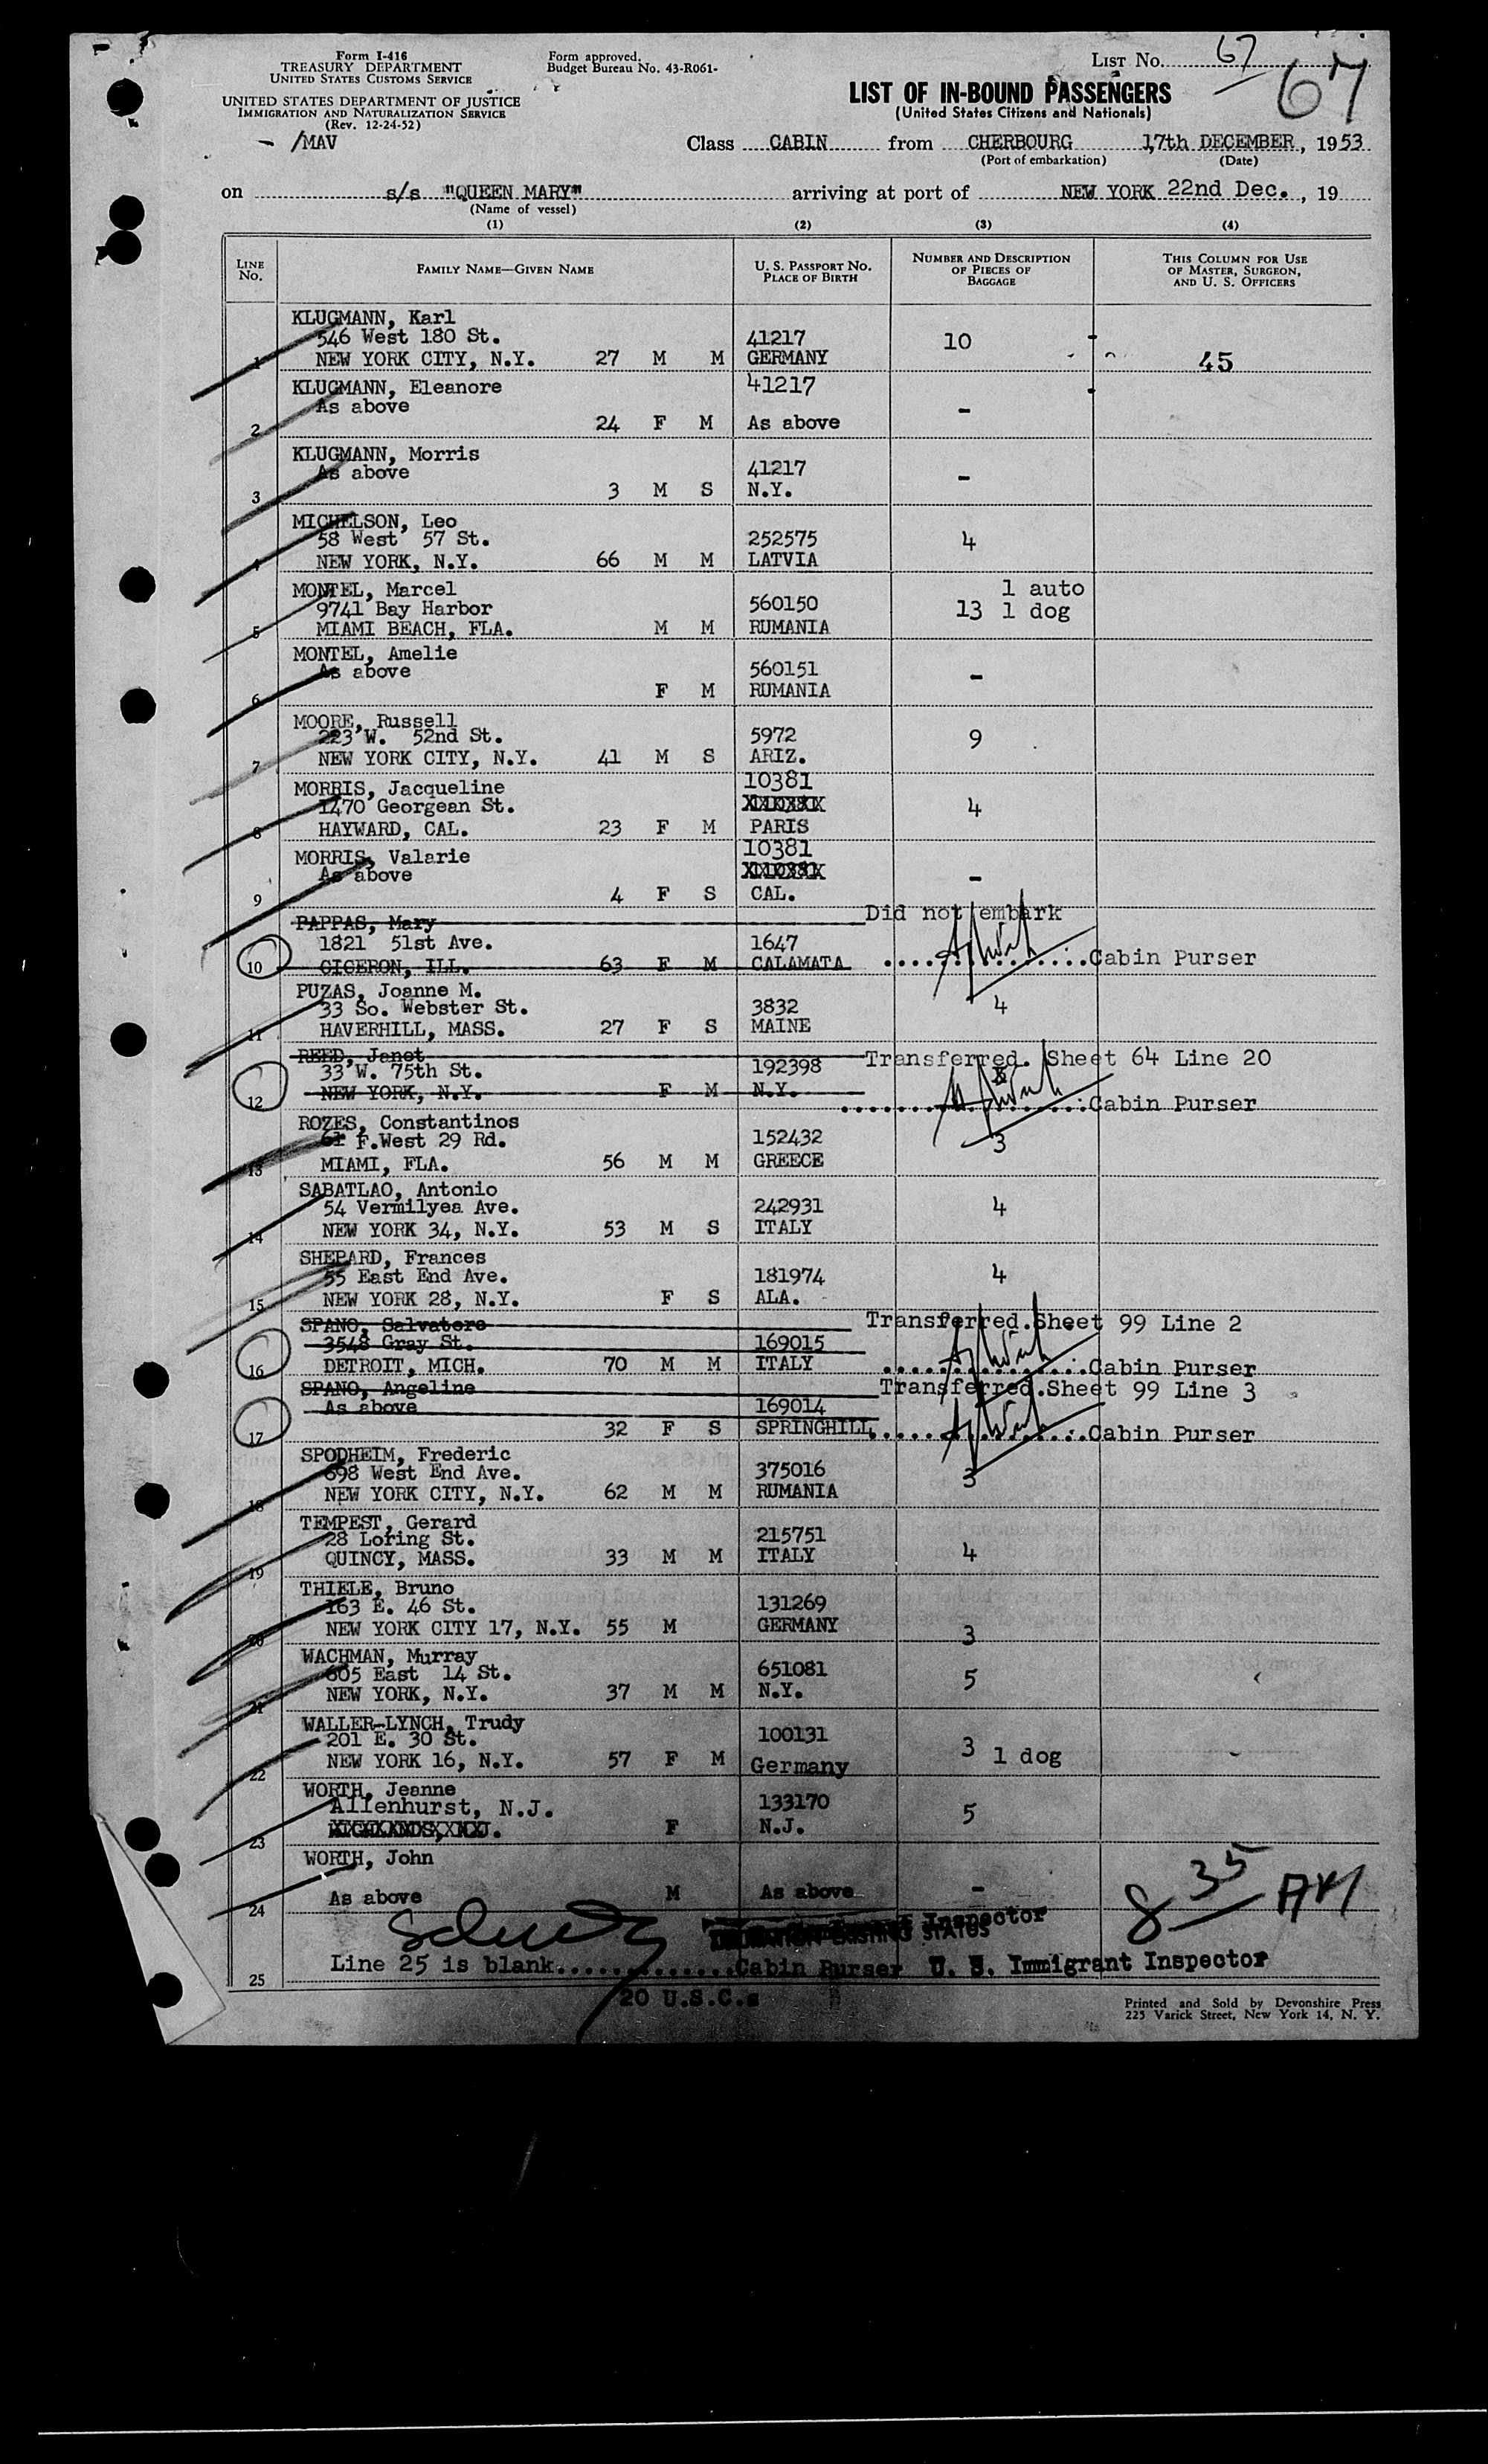 Form I-416
TREASURY DEPARTMENT
UNITED STATES CUSTOMS SERVICE
Form approved.
Budget Bureau No. 43-R061-
LIST NO. 67
67
UNITED STATES DEPARTMENT OF JUSTICE
IMMIGRATION AND NATURALIZATION SERVICE
(Rev. 12-24-52)
/MAV
LIST OF IN-BOUND PASSENGERS
(United States Citizens and Nationals)
Class CABIN from CHERBOURG 17th DECEMBER, 1953
(Port of embarkation) (Date)
on s/s "QUEEN MARY" arriving at port of NEW YORK 22nd Dec., 19
(Name of vessel)
(1) (2) (3) (4)
LINE NO. FAMILY NAME—GIVEN NAME U. S. PASSPORT NO. PLACE OF BIRTH NUMBER AND DESCRIPTION OF PIECES OF BAGGAGE THIS COLUMN FOR USE OF MASTER, SURGEON, AND U. S. OFFICERS
KLUGMANN, Karl
546 West 180 St. 41217 10
1 NEW YORK CITY, N.Y. 27 M M GERMANY 45
KLUGMANN, Eleanore 41217
As above -
2 24 F M As above
KLUGMANN, Morris
As above 41217 -
3 3 M S N.Y.
MICHELSON, Leo
58 West 57 St. 252575 4
4 NEW YORK, N.Y. 66 M M LATVIA
MONTEL, Marcel 1 auto
9741 Bay Harbor 560150 13 1 dog
5 MIAMI BEACH, FLA. M M RUMANIA
MONTEL, Amelie
As above 560151 -
6 F M RUMANIA
MOORE, Russell
223 W. 52nd St. 5972 9
7 NEW YORK CITY, N.Y. 41 M S ARIZ.
MORRIS, Jacqueline 10381
1470 Georgean St. 4
8 HAYWARD, CAL. 23 F M PARIS
MORRIS, Valarie 10381
As above -
9 4 F S CAL.
PAPPAS, Mary Did not embark
1821 51st Ave. 1647
10 CICERON, ILL. 63 F M CALAMATA ..............Cabin Purser
PUZAS, Joanne M.
33 So. Webster St. 3832 4
11 HAVERHILL, MASS. 27 F S MAINE
REED, Janet Transferred. Sheet 64 Line 20
33 W. 75th St. 192398
12 NEW YORK, N.Y. F M N.Y. ..............Cabin Purser
ROZES, Constantinos
61 F.West 29 Rd. 152432 3
13 MIAMI, FLA. 56 M M GREECE
SABATLAO, Antonio
54 Vermilyea Ave. 242931 4
14 NEW YORK 34, N.Y. 53 M S ITALY
SHEPARD, Frances
55 East End Ave. 181974 4
15 NEW YORK 28, N.Y. F S ALA.
SPANO, Salvatore Transferred.Sheet 99 Line 2
3548 Gray St. 169015
16 DETROIT, MICH. 70 M M ITALY ..............Cabin Purser
SPANO, Angeline Transferred.Sheet 99 Line 3
As above 169014
17 32 F S SPRINGHILL ..............Cabin Purser
SPODHEIM, Frederic
698 West End Ave. 375016 3
18 NEW YORK CITY, N.Y. 62 M M RUMANIA
TEMPEST, Gerard
28 Loring St. 215751 4
19 QUINCY, MASS. 33 M M ITALY
THIELE, Bruno
163 E. 46 St. 131269
20 NEW YORK CITY 17, N.Y. 55 M GERMANY 3
WACHMAN, Murray
605 East 14 St. 651081 5
21 NEW YORK, N.Y. 37 M M N.Y.
WALLER-LYNCH, Trudy
201 E. 30 St. 100131 3 1 dog
22 NEW YORK 16, N.Y. 57 F M Germany
WORTH, Jeanne
Allenhurst, N.J. 133170 5
23 F N.J.
WORTH, John
24 As above M As above -
8 35 AM
Inspector
Line 25 is blank..............Cabin Purser U. S. Immigrant Inspector
25
20 U.S.C.s
Printed and Sold by Devonshire Press
225 Varick Street, New York 14, N. Y.